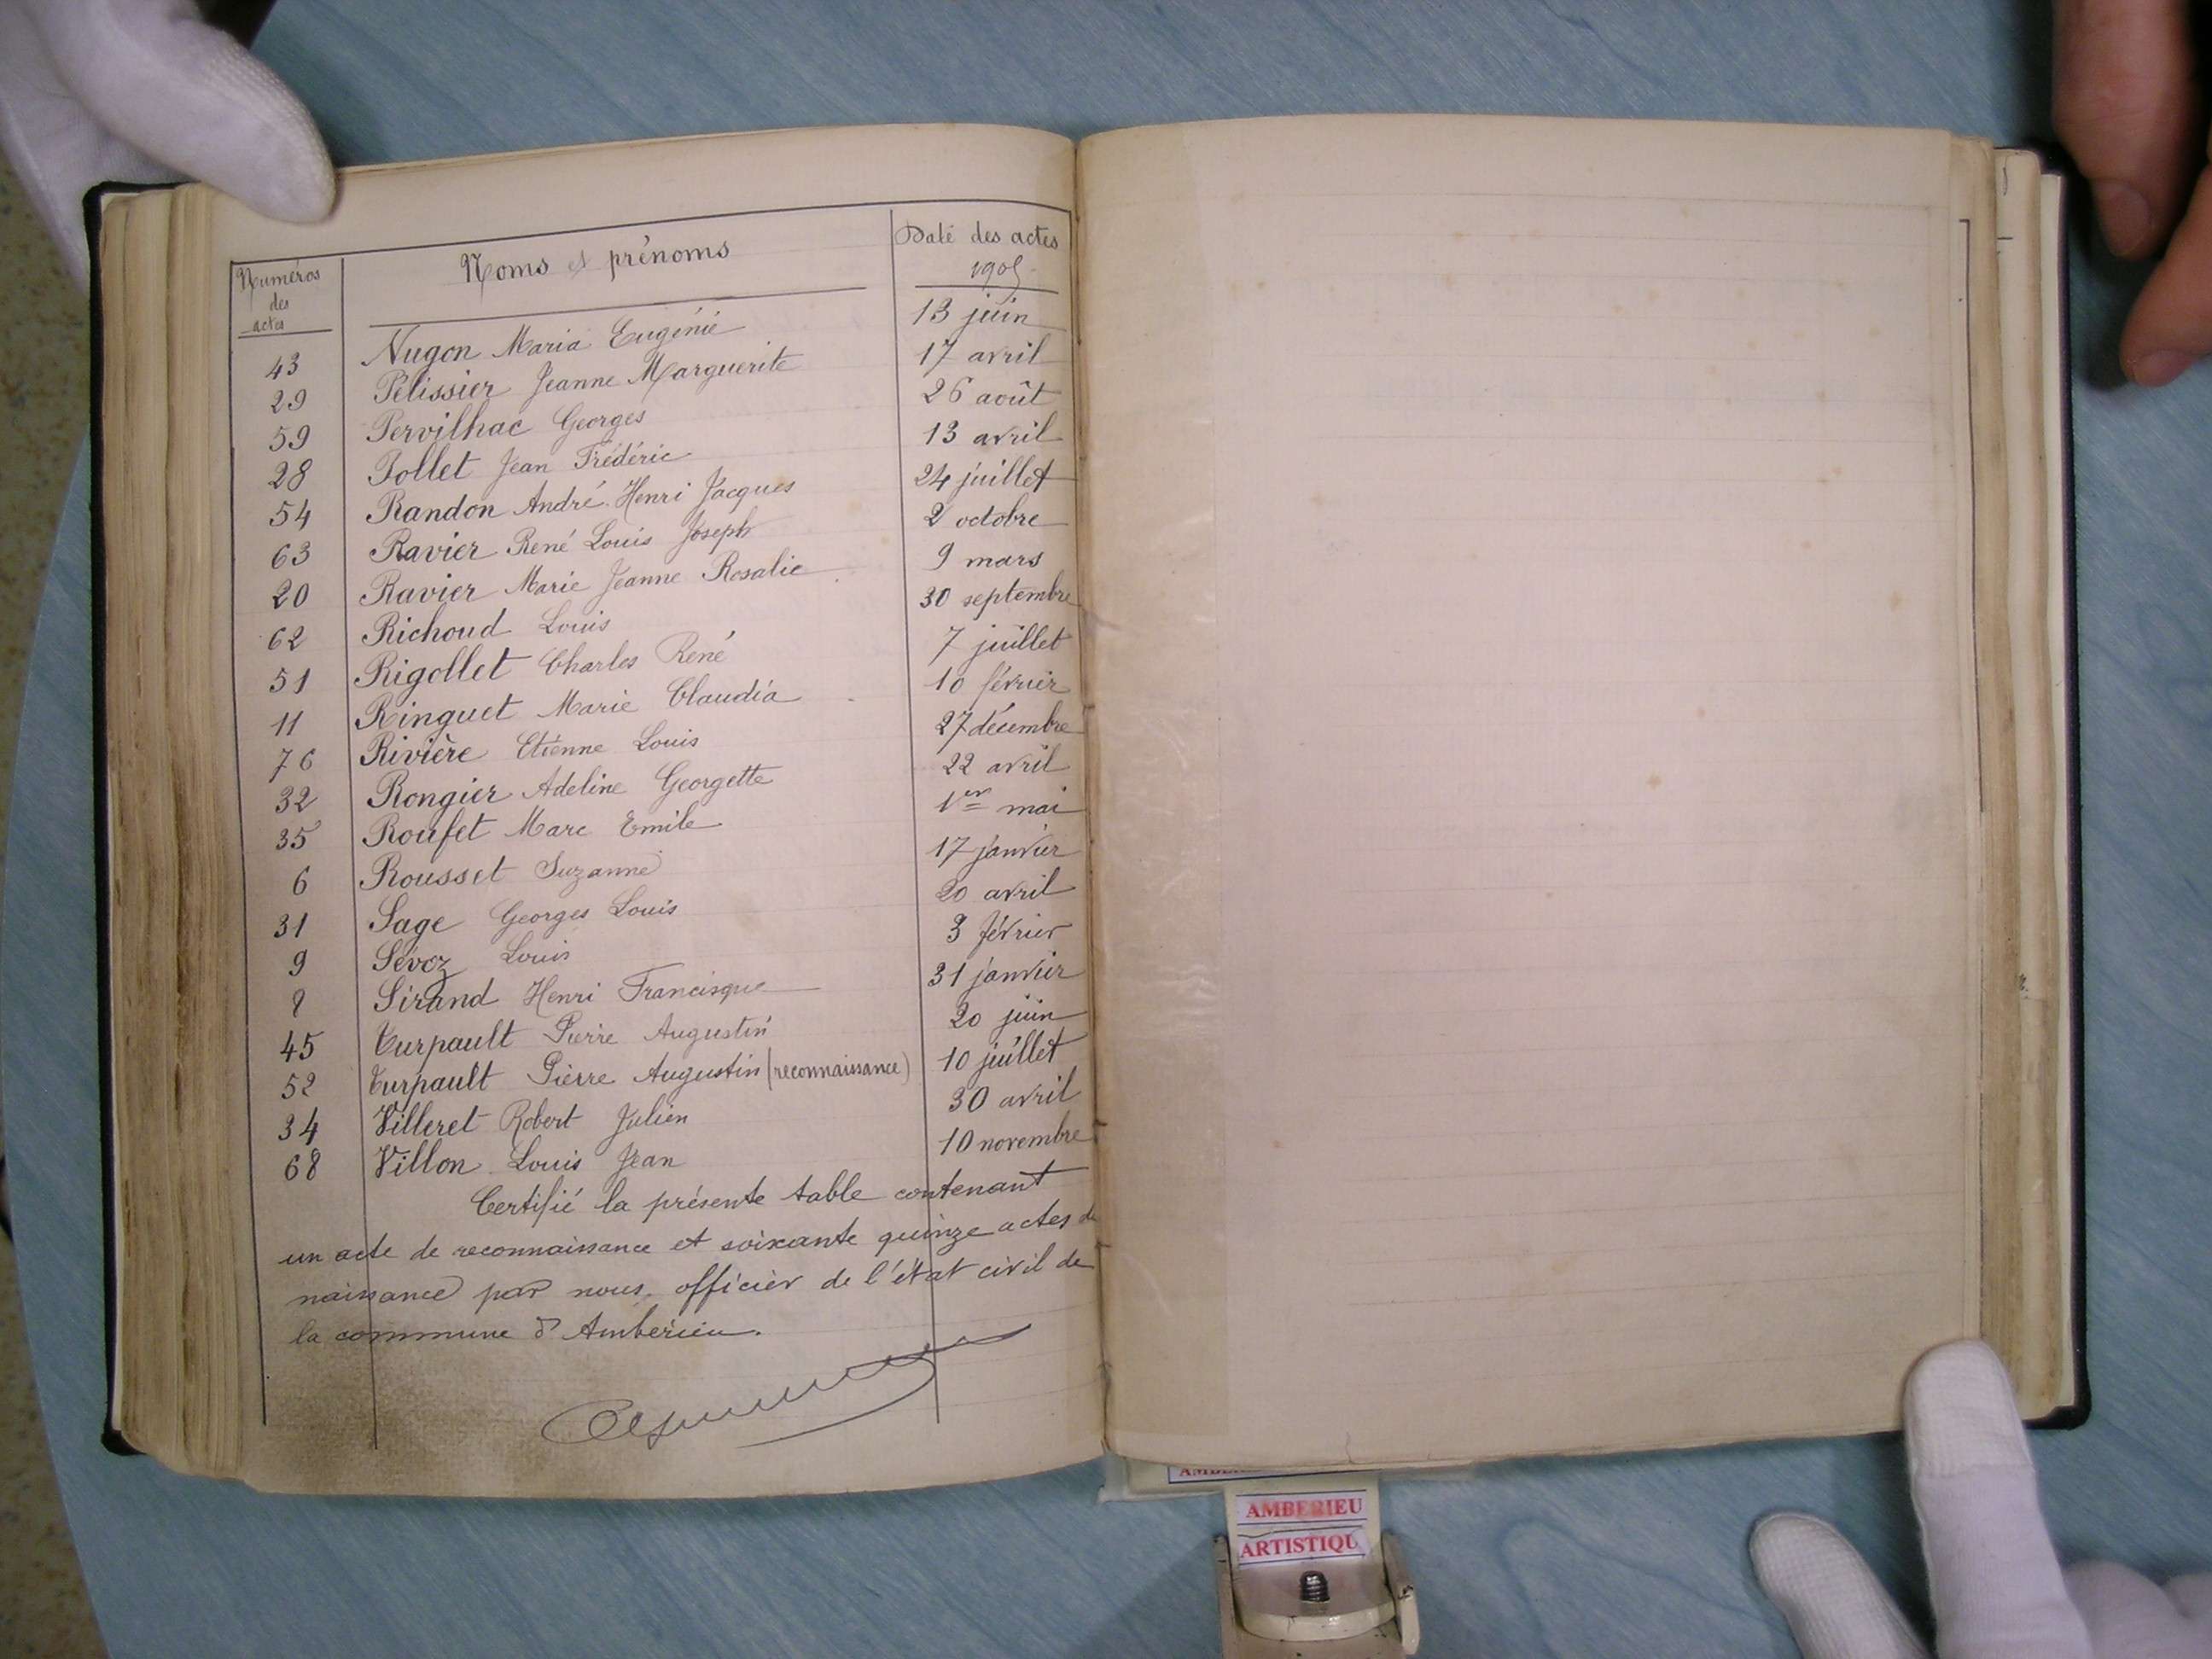 Numéros des actes Noms et prénoms Date des actes 1905
43 Nugon Maria Eugénie 13 juin
29 Pélissier Jeanne Marguerite 17 avril
59 Pervilhac Georges 26 août
28 Pollet Jean Frédéric 13 avril
54 Randon André Henri Jacques 24 juillet
63 Ravier René Louis Joseph 2 octobre
20 Ravier Marie Jeanne Rosalie 9 mars
62 Richoud Louis 30 septembre
51 Rigollet Charles René 7 juillet
11 Ringuet Marie Claudia 10 février
76 Rivière Etienne Louis 27 décembre
32 Rongier Adeline Georgette 22 avril
35 Roufet Marc Emile 1er mai
6 Rousset Suzanne 17 janvier
31 Sage Georges Louis 20 avril
9 Sévoz Louis 3 février
8 Sirand Henri Francisque 31 janvier
45 Turpault Pierre Augustin 20 juin
52 Turpault Pierre Augustin (reconnaissance) 10 juillet
34 Villeret Robert Julien 30 avril
68 Villon Louis Jean 10 novembre
Certifié la présente table contenant
un acte de reconnaissance et soixante quinze actes de
naissance par nous, officier de l'état civil de
la commune d'Ambérieu.
AMBERIEU
ARTISTIQU